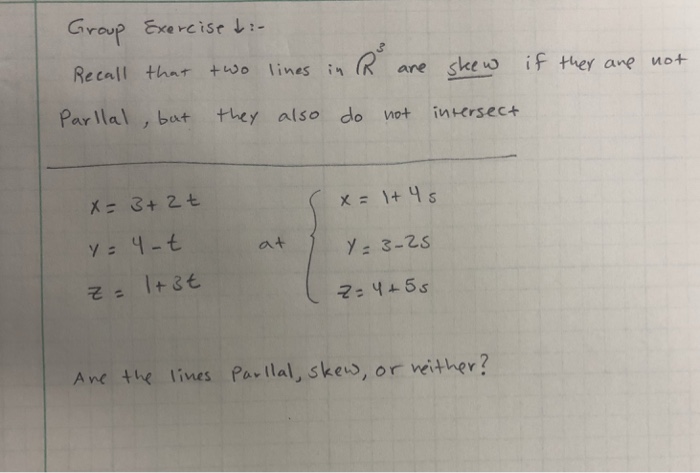 Group Exercise ↓:-
Recall that two lines in R³ are skew if they are not
Parllal, but they also do not intersect
x = 3+2t
y = 4-t
z = 1+3t
at
x = 1+4s
y = 3-2s
z = 4+5s
Are the lines Parllal, skew, or neither?